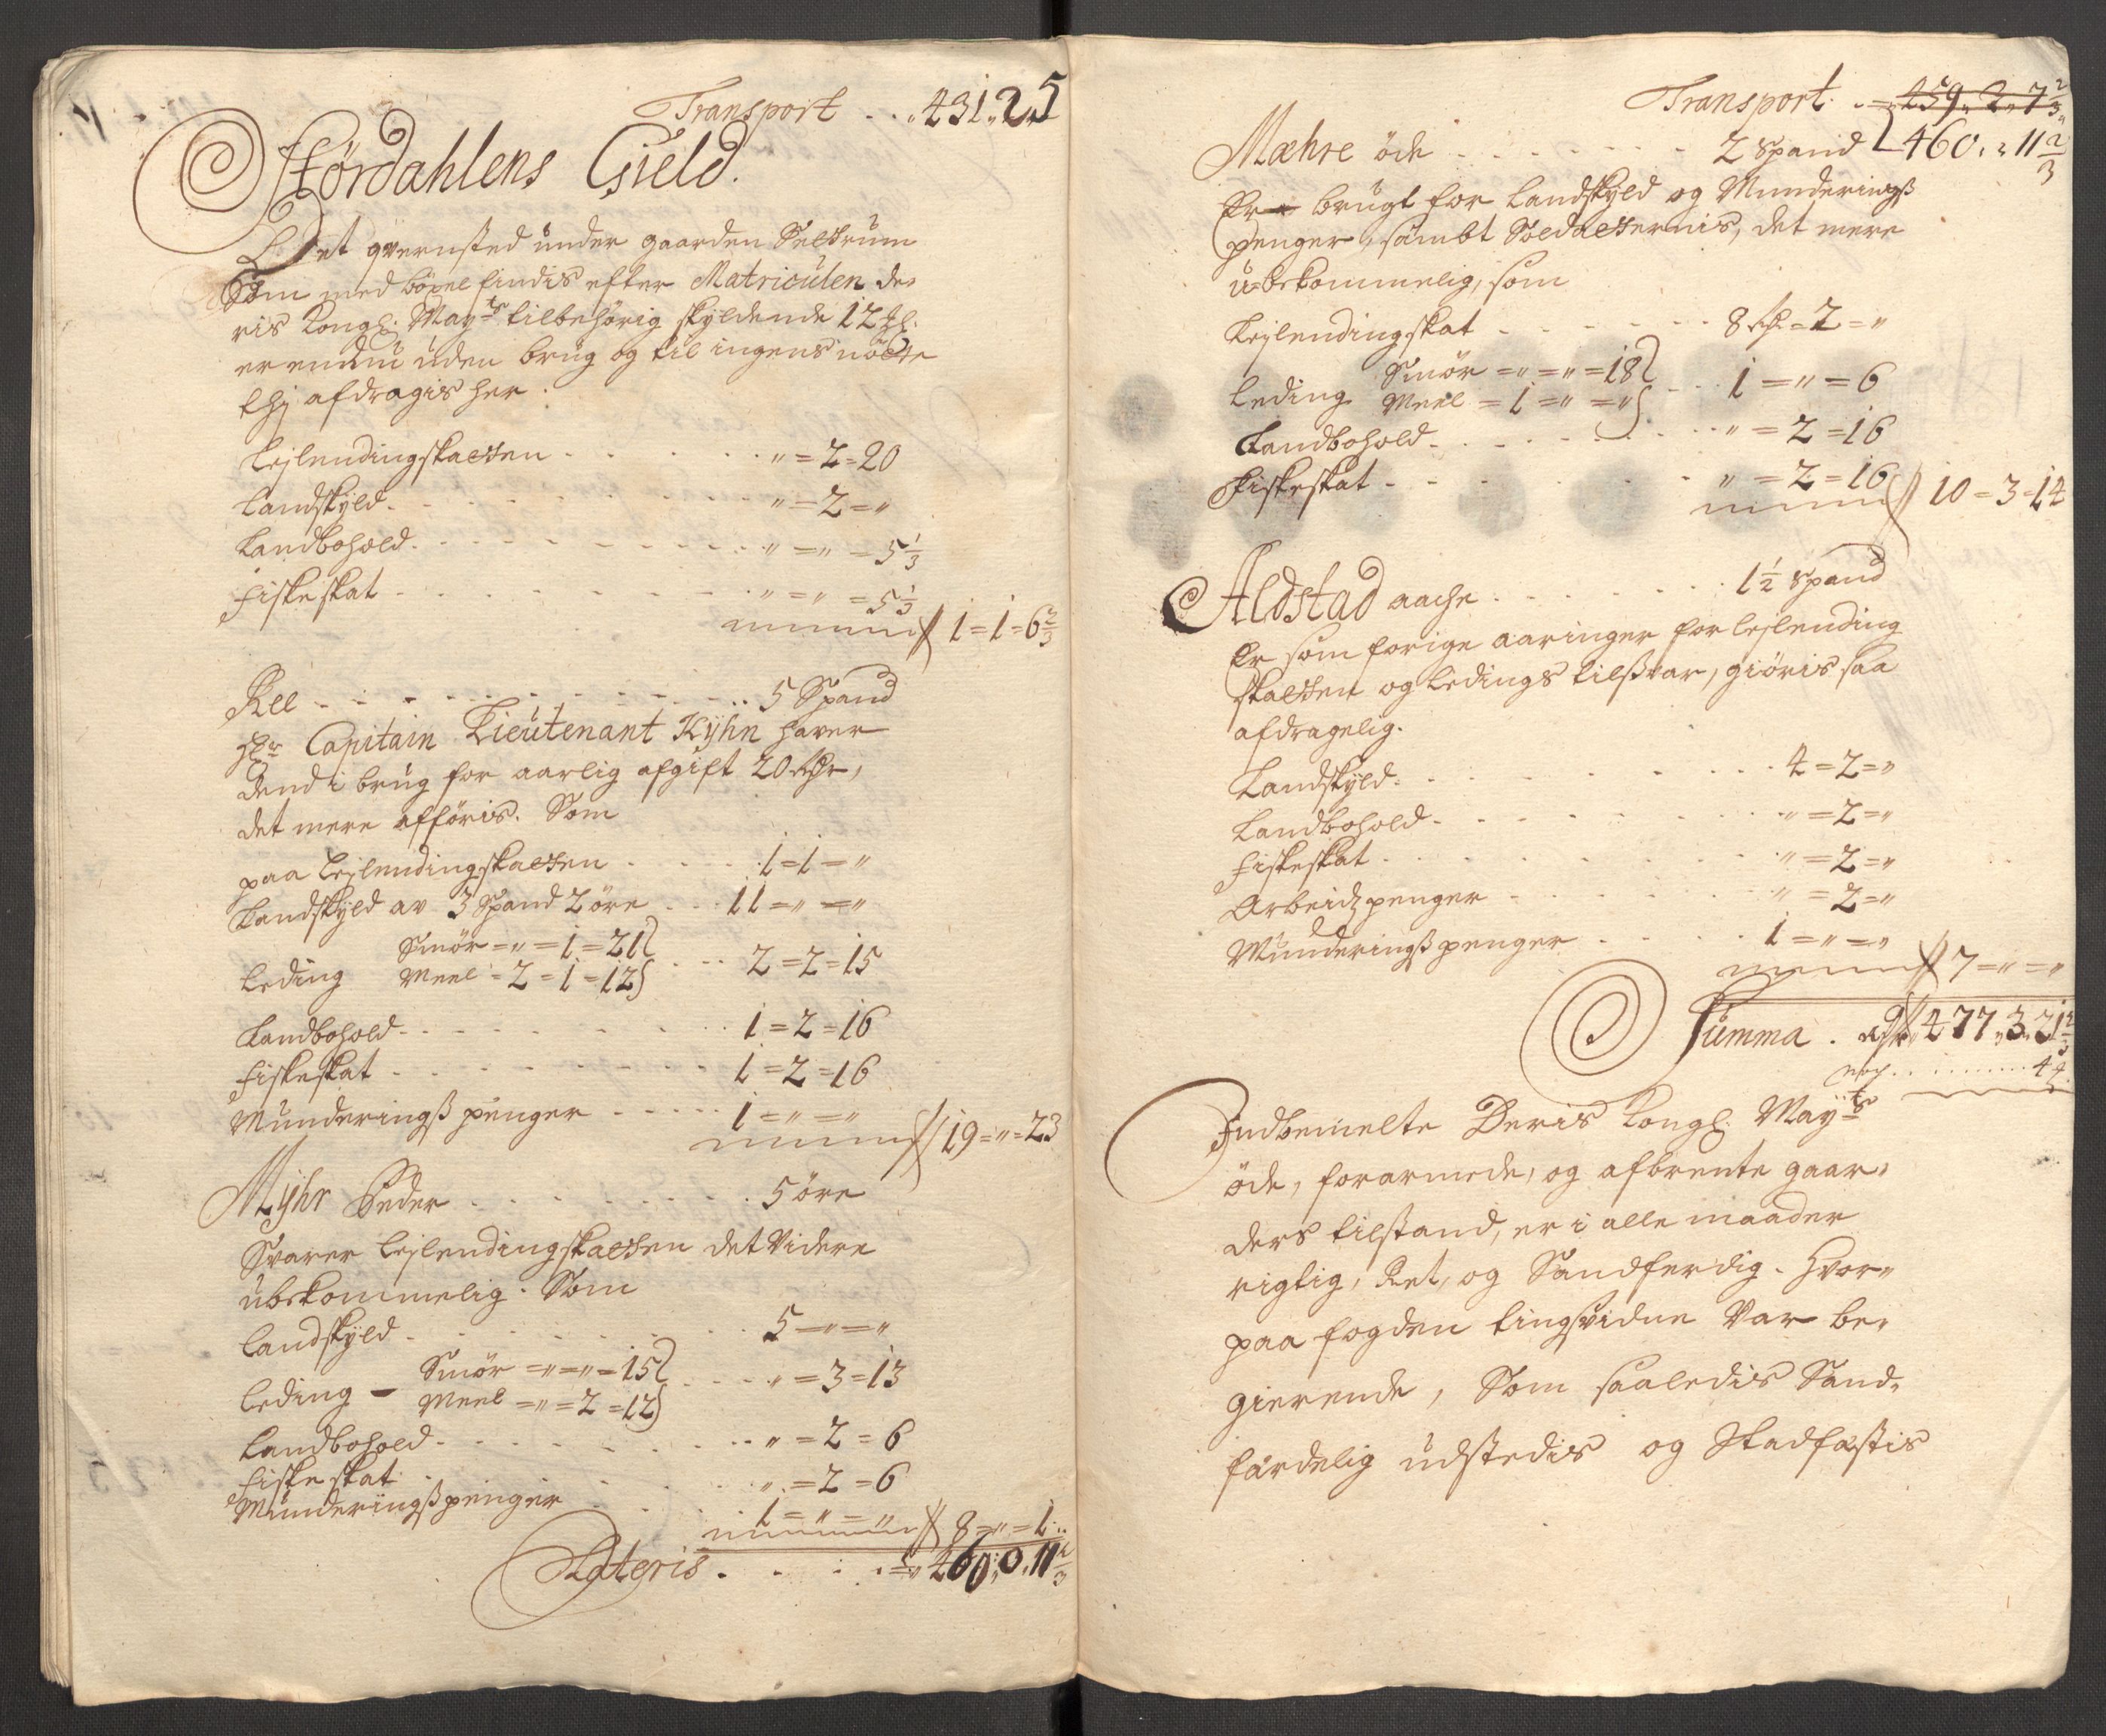 Transport . . „ 431„2„5
Størdahlens Gield.
Det qvernsted under gaarden Selstrum
Som med böxel findis efter Matriculen de„
ris Kongl: Mayts tilbehörig skyldende 12 
er endnu uden brug og til ingens nötte
thj afdragis her.
Lejlendingskatten . . . . „ = 2 = 20
Landskÿld . . . . „ = 2 = „
Landbohold . . . . „ = „ = 5 1/3
Fiskeskat . . . . „ = „ = 5 1/3
1 = 1 = 6 2/3
Ree . . . . 5 Spand
Hr Capitain Lieutenant Kÿhn haver
dend i brug for aarlig afgift 20 rdr,
det mere afföris. Som
paa Lejlendingskatten . . . . 1 = 1 = „
Landskÿld av 3 Spand 2 öre . . . 11 = „ = „
Leding Smör = „ = 1 = 21
Meel = 2 = 1 = 12 } . . . 2 = 2 = 15
Landbohold . . . . 1 = 2 = 16
Fiskeskat . . . . 1 = 2 = 16
Munderingß penger . . . . 1 = „ = „
19 = „ = 23
Mÿhr Peder . . . . 5 öre
Svarer Lejlendingskatten det Videre
ubekommelig. Som
Landskÿld . . . . 5 = „ = „
Leding – Smör = „ = „ = 15
Meel = „ = 2 = 12 } . . . „ = 3 = 13
Landbohold . . . . „ = 2 = 6
Fiske skat . . . . „ = 2 = 6
Munderingßpenger . . . . 1 = „ = „
8 = „ = 1
Lateris . . . . 460„0„11 2/3
Transport . . 459„2„7 2/3
Mæhre öde . . . . 2 Spand
460„ „11 2/3
Er brugt for Landskÿld og Munderingß
penger, sambt Soldatternis, det mere
u-bekommelig, som
Lejlendingskat . . . . 8 rdr = 2 = „
Leding Smör = „ = „ = 18
Meel = 1 = „ = „ } . . . 1 = „ = 6
Landbohold . . . . „ = 2 = 16
Fiskeskat . . . . „ = 2 = 16
10 = 3 = 14
Aldstad aashe . . . . 1 1/2 Spand
Er som forige aaringer for lejlending
skatten og Ledings tilßvar, giöris saa
afdragelig.
Landskÿld . . . . 4 = 2 = „
Landbohold . . . . „ = 2 = „
Fiskeskat . . . . „ = 2 = „
Arbeidz penger . . . . „ = 2 = „
Munderingß penger . . . . 1 = „ = „
7 = „ = „
Summa . rdr 477„3„21 2/3
Indbemelte Deris Kongl: Mayts
öde, forarmede, og afbrente gaar„
ders tilstand, er i alle maader
rigtig, Ret, og Sandferdig. Hvor„
paa fogden tingsvidne Var be„
gierende, Som saaledis Sand„
færdelig udstedis og Stadfæstis